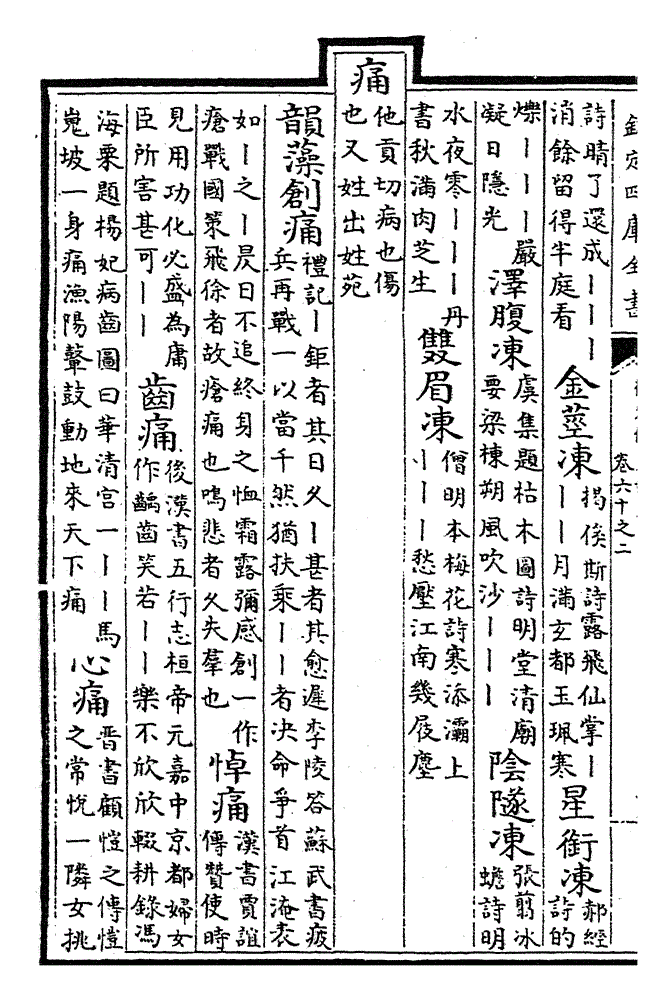 欽定四庫全書
卷六十之二
詩晴了還成丨丨丨
消餘留得半庭看
金莖凍
揭傒斯詩露飛仙掌丨
丨丨月滿玄都玉珮寒
星銜凍
郝經
詩的
爍丨丨丨嚴
凝日隱光
澤腹凍
虞集題枯木圖詩明堂清廟
要梁棟朔風吹沙丨丨丨
陰隧凍
張翦冰
蟾詩明
水夜寒丨丨丨丹
書秋滿肉芝生
雙眉凍
僧明本梅花詩寒添灞上
丨丨丨愁壓江南幾屐塵
痛
他貢切病也傷
也又姓出姓苑
韻藻創痛
禮記丨鉅者其日久丨甚者其愈遲李陵答蘇武書疲
兵再戰一以當千然猶扶乘丨丨者決命爭首江淹表
如丨之丨晨日不追終身之恤霜露彌感創一作
瘡戰國策飛徐者故瘡痛也鳴悲者久失羣也
悼痛
漢書賈誼
傳贊使時
見用功化必盛為庸
臣所害甚可丨丨
齒痛
後漢書五行志桓帝元嘉中京都婦女
作齲齒笑若丨丨樂不欣欣輟耕錄馮
海粟題楊妃病齒圖曰華清宮一丨丨馬
嵬坡一身痛漁陽鼙鼓動地來天下痛
心痛
晉書顧愷之傳愷
之常悅一隣女挑